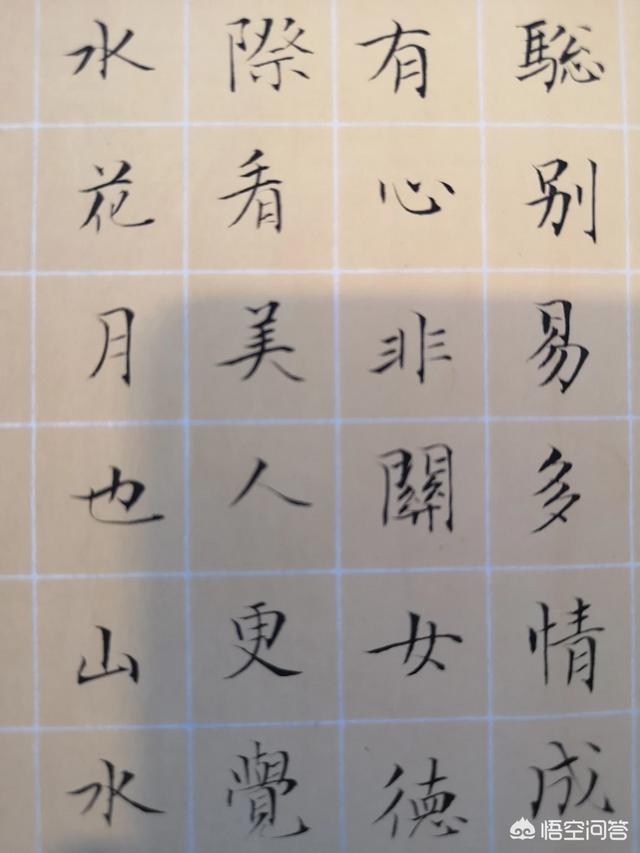 聡别易多情成
有心非關女德
際看美人更覺
水花月也山水
悟空问答